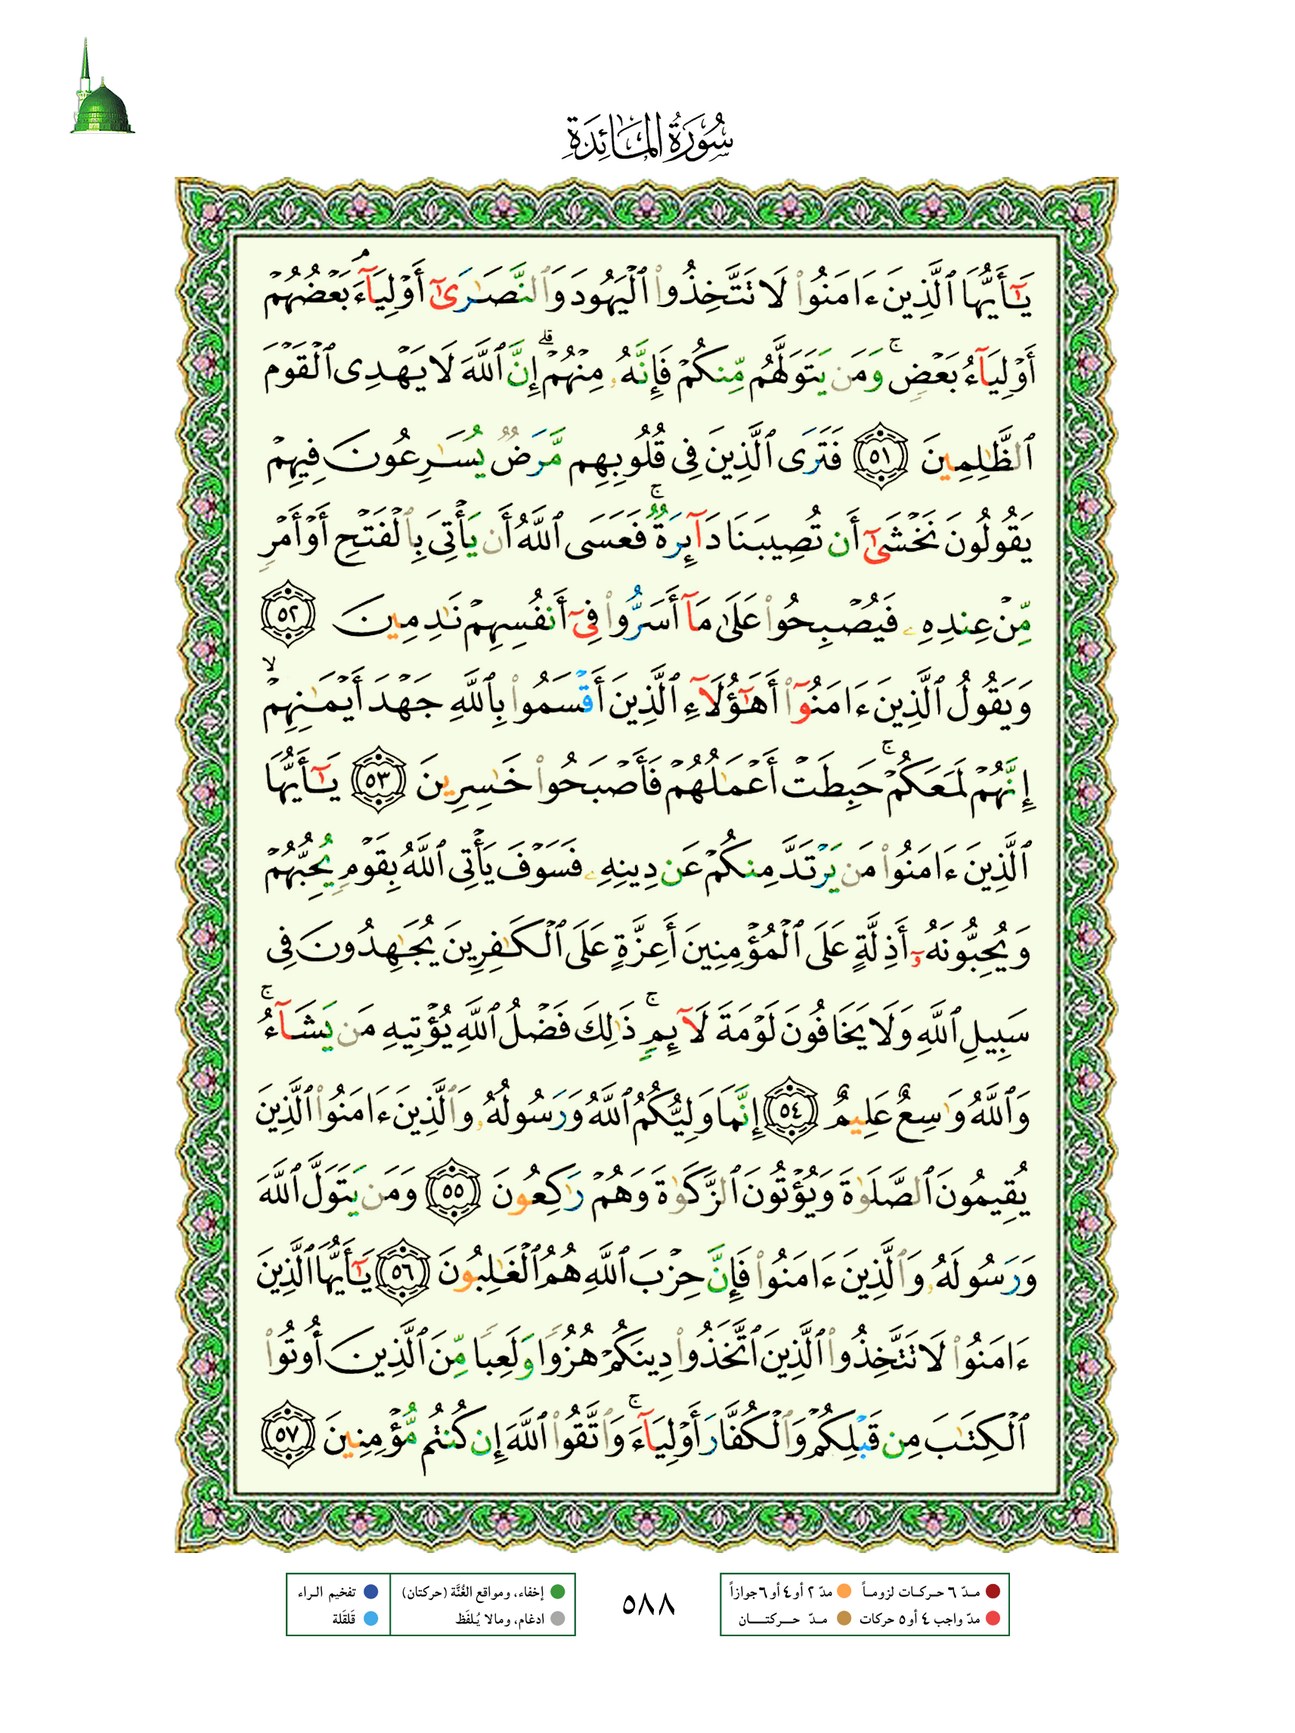 سُورَةُ المَائِدَةِ
يَٰٓأَيُّهَا ٱلَّذِينَ ءَامَنُوا۟ لَا تَتَّخِذُوا۟ ٱلْيَهُودَ وَٱلنَّصَٰرَىٰٓ أَوْلِيَآءَ ۘ بَعْضُهُمْ
أَوْلِيَآءُ بَعْضٍ ۚ وَمَن يَتَوَلَّهُم مِّنكُمْ فَإِنَّهُۥ مِنْهُمْ ۗ إِنَّ ٱللَّهَ لَا يَهْدِى ٱلْقَوْمَ
ٱلظَّٰلِمِينَ ٥١ فَتَرَى ٱلَّذِينَ فِى قُلُوبِهِم مَّرَضٌ يُسَٰرِعُونَ فِيهِمْ
يَقُولُونَ نَخْشَىٰٓ أَن تُصِيبَنَا دَآئِرَةٌ ۚ فَعَسَى ٱللَّهُ أَن يَأْتِىَ بِٱلْفَتْحِ أَوْ أَمْرٍ
مِّنْ عِندِهِۦ فَيُصْبِحُوا۟ عَلَىٰ مَآ أَسَرُّوا۟ فِىٓ أَنفُسِهِمْ نَٰدِمِينَ ٥٢
وَيَقُولُ ٱلَّذِينَ ءَامَنُوٓا۟ أَهَٰٓؤُلَآءِ ٱلَّذِينَ أَقْسَمُوا۟ بِٱللَّهِ جَهْدَ أَيْمَٰنِهِمْ ۙ
إِنَّهُمْ لَمَعَكُمْ ۚ حَبِطَتْ أَعْمَٰلُهُمْ فَأَصْبَحُوا۟ خَٰسِرِينَ ٥٣ يَٰٓأَيُّهَا
ٱلَّذِينَ ءَامَنُوا۟ مَن يَرْتَدَّ مِنكُمْ عَن دِينِهِۦ فَسَوْفَ يَأْتِى ٱللَّهُ بِقَوْمٍ يُحِبُّهُمْ
وَيُحِبُّونَهُۥٓ أَذِلَّةٍ عَلَى ٱلْمُؤْمِنِينَ أَعِزَّةٍ عَلَى ٱلْكَٰفِرِينَ يُجَٰهِدُونَ فِى
سَبِيلِ ٱللَّهِ وَلَا يَخَافُونَ لَوْمَةَ لَآئِمٍ ۚ ذَٰلِكَ فَضْلُ ٱللَّهِ يُؤْتِيهِ مَن يَشَآءُ ۚ
وَٱللَّهُ وَٰسِعٌ عَلِيمٌ ٥٤ إِنَّمَا وَلِيُّكُمُ ٱللَّهُ وَرَسُولُهُۥ وَٱلَّذِينَ ءَامَنُوا۟ ٱلَّذِينَ
يُقِيمُونَ ٱلصَّلَوٰةَ وَيُؤْتُونَ ٱلزَّكَوٰةَ وَهُمْ رَٰكِعُونَ ٥٥ وَمَن يَتَوَلَّ ٱللَّهَ
وَرَسُولَهُۥ وَٱلَّذِينَ ءَامَنُوا۟ فَإِنَّ حِزْبَ ٱللَّهِ هُمُ ٱلْغَٰلِبُونَ ٥٦ يَٰٓأَيُّهَا ٱلَّذِينَ
ءَامَنُوا۟ لَا تَتَّخِذُوا۟ ٱلَّذِينَ ٱتَّخَذُوا۟ دِينَكُمْ هُزُوًا وَلَعِبًا مِّنَ ٱلَّذِينَ أُوتُوا۟
ٱلْكِتَٰبَ مِن قَبْلِكُمْ وَٱلْكُفَّارَ أَوْلِيَآءَ ۚ وَٱتَّقُوا۟ ٱللَّهَ إِن كُنتُم مُّؤْمِنِينَ ٥٧
مـدّ ٦ حـركـات لزومـاً مدّ ٢ أو ٤ أو ٦ جوازاً
مدّ واجب ٤ أو ٥ حركات مـدّ حـــركتـــــان
٥٨٨
إخفاء، ومواقع الغُنَّة (حركتان) تفخيم الـراء
ادغام، ومالا يُـلفَظ قَلقَلة